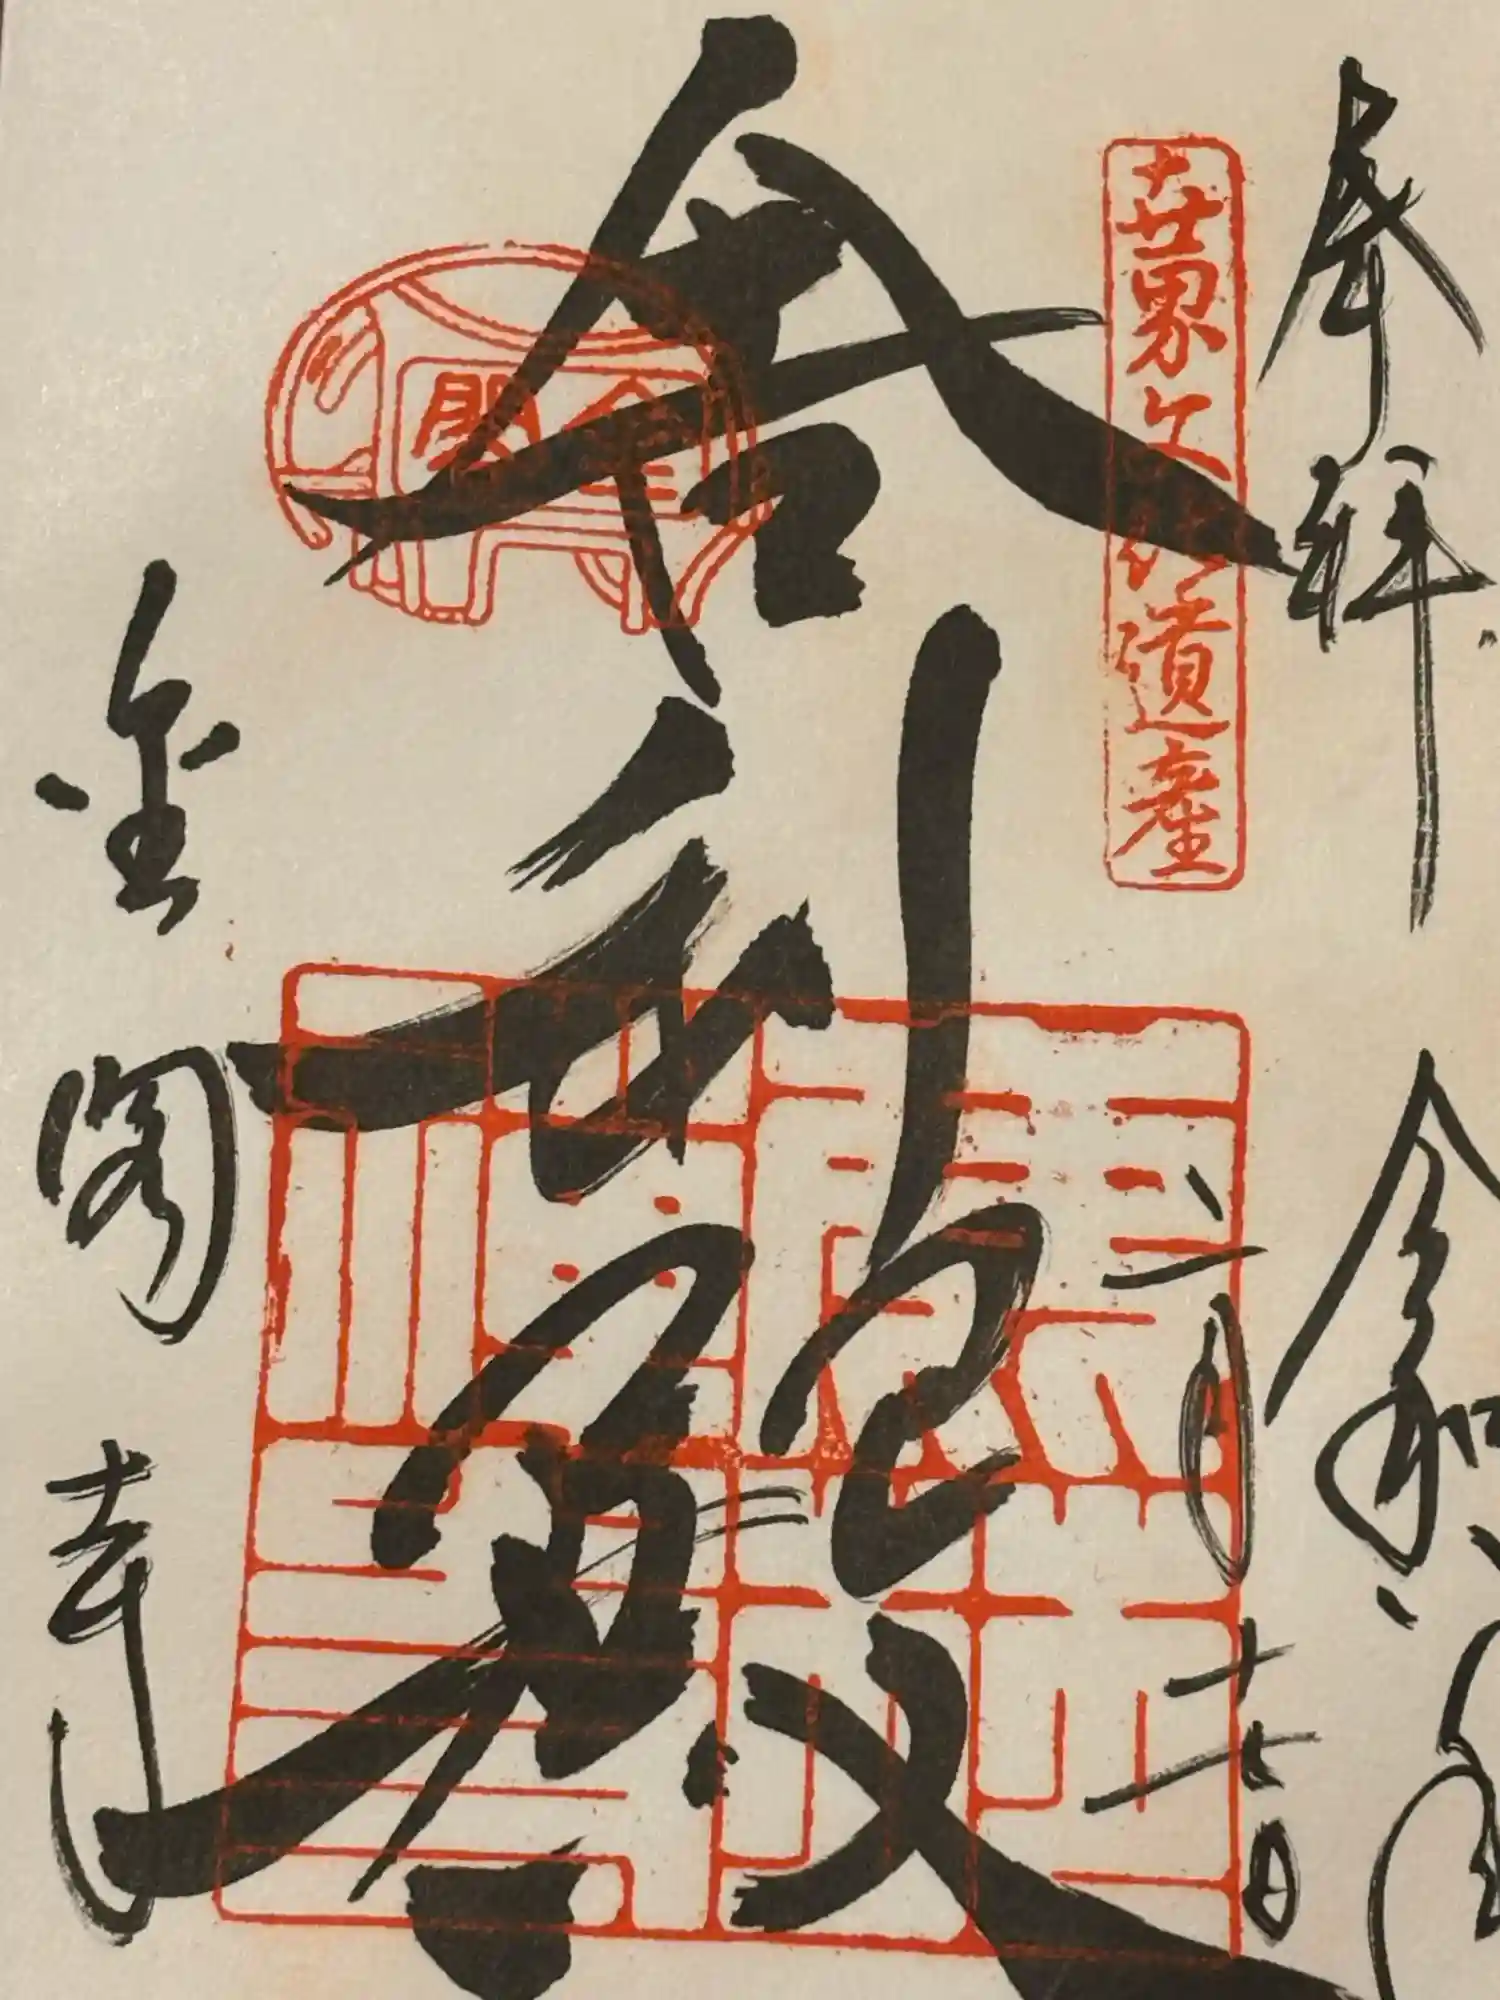 奉拝
令和
二月十七日
世界文化遺産
舎利殿
金閣
金閣寺